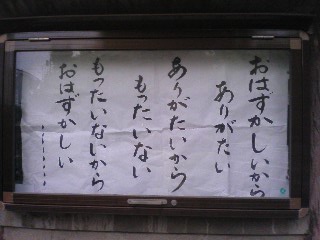 おはずかしいから
ありがたい
ありがたいから
もったいない
もったいないから
おはずかしい
........